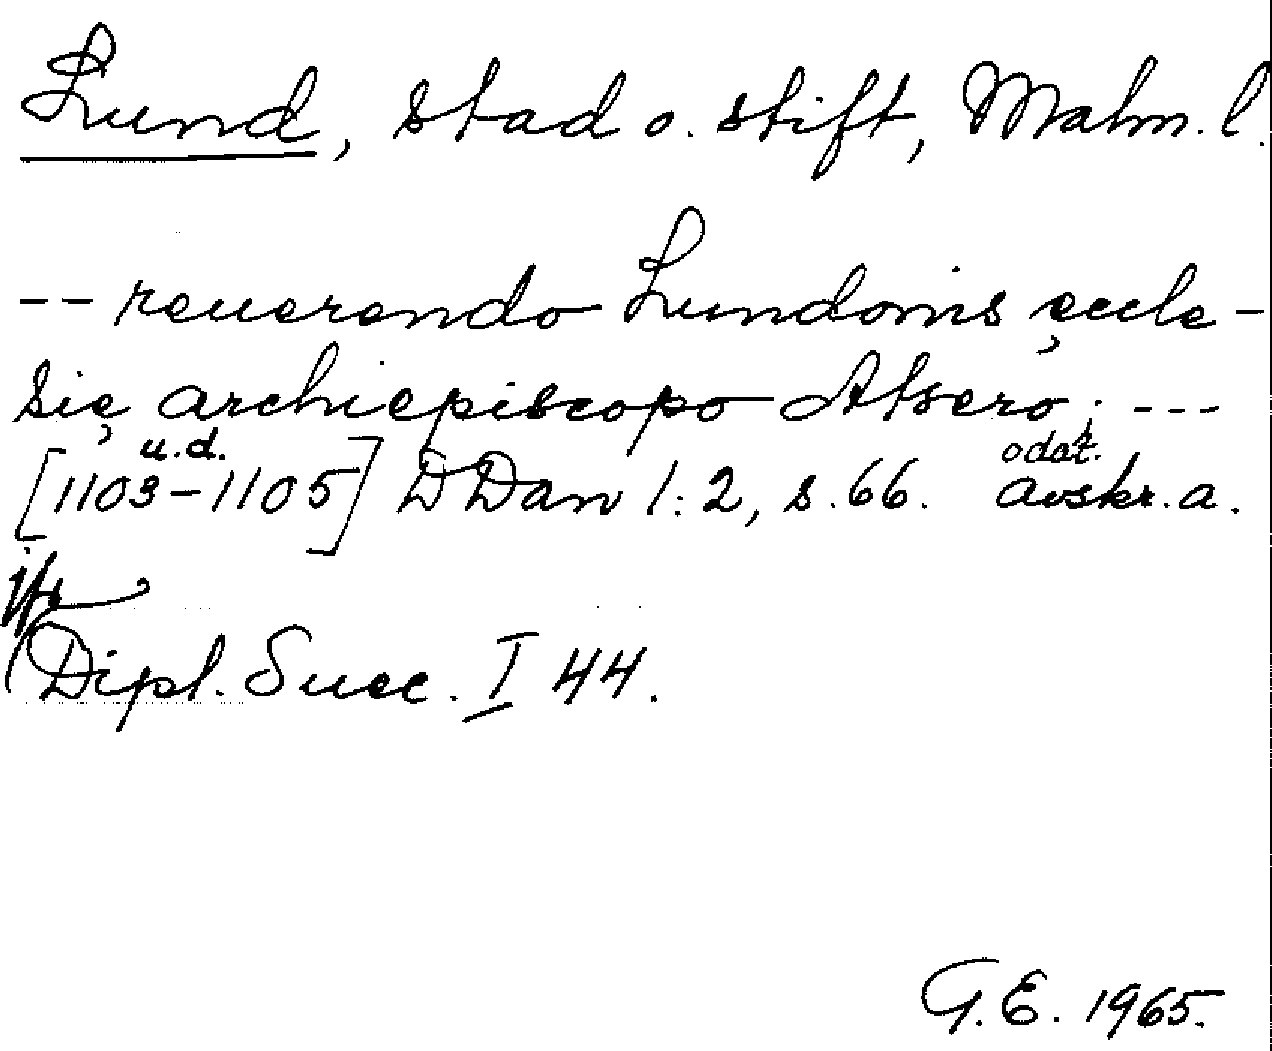 Lund, stad o. stift, Malm. l.
-- reuerendo Lundonis ęccle-
się archiepiscopo Atsero; ---
u.d. odat.
[1103-1105] DDan 1:2, s. 66. avskr. a.
jfr
Dipl. Suec. I 44.
G.E. 1965.